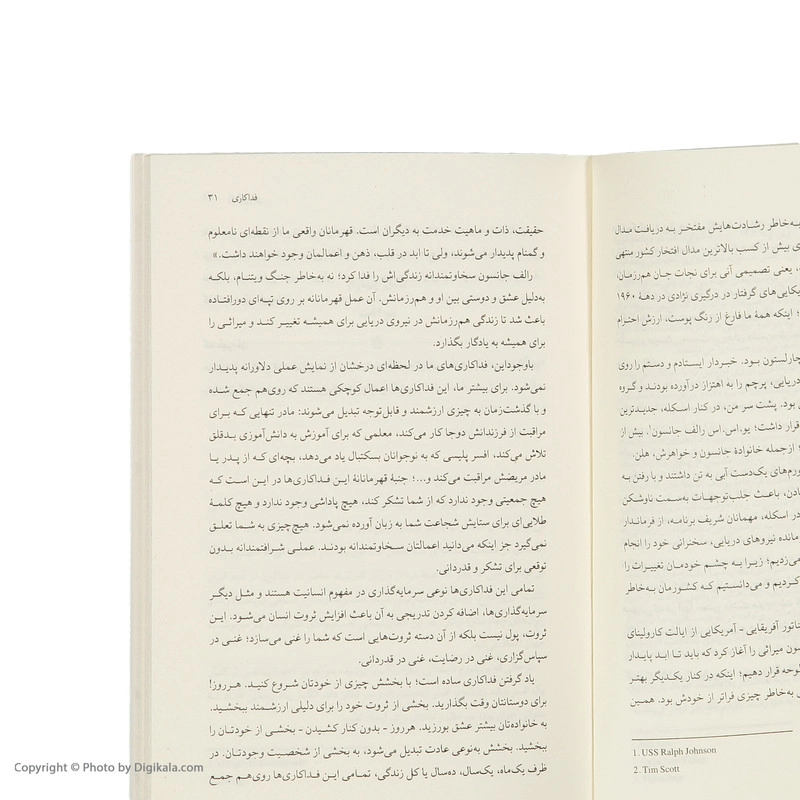 به‌خاطر رشادت‌هایش مفتخر به دریافت مدال
ی بیش از کسب بالاترین مدال افتخار کشور منتهی
، یعنی تصمیمی آنی برای نجات جان هم‌رزمان،
یکایی‌های گرفتار در درگیری نژادی در دههٔ ۱۹۶۰
؛ اینکه همهٔ ما فارغ از رنگ پوست، ارزش احترام
چارلستون بود. خبردار ایستادم و دستم را روی
دریایی، پرچم را به اهتزاز درآورده بودند و گروه
بود. پشت سر من، در کنار اسکله، جدیدترین
قرار داشت؛ یو.اس.اس رالف جانسون۱. بیش از
؛ ازجمله خانوادهٔ جانسون و خواهرش، هلن.
ورم‌های یک‌دست آبی به تن داشتند و با رفتن به
دادن، باعث جلب‌توجهات به‌سمت ناوشکن
در اسکله، مهمانان شریف برنامه، از فرماندار
مانده نیروهای دریایی، سخنرانی خود را انجام
می‌زدیم؛ زیرا به چشم خودمان تغییرات را
کردیم و می‌دانستیم که کشورمان به‌خاطر
ناتور آفریقایی - آمریکایی از ایالت کارولینای
سون میراثی را آغاز کرد که باید تا ابد پایدار
لوحه قرار دهیم؛ اینکه در کنار یکدیگر بهتر
ی به‌خاطر چیزی فراتر از خودش بود. همین
1. USS Ralph Johnson
2. Tim Scott
فداکاری ۳۱
حقیقت، ذات و ماهیت خدمت به دیگران است. قهرمانان واقعی ما از نقطه‌ای نامعلوم
و گمنام پدیدار می‌شوند، ولی تا ابد در قلب، ذهن و اعمالمان وجود خواهند داشت.»
رالف جانسون سخاوتمندانه زندگی‌اش را فدا کرد؛ نه به‌خاطر جنگ ویتنام، بلکه
به‌دلیل عشق و دوستی بین او و هم‌رزمانش. آن عمل قهرمانانه بر روی تپه‌ای دورافتاده
باعث شد تا زندگی هم‌رزمانش در نیروی دریایی برای همیشه تغییر کند و میراثی را
برای همیشه به یادگار بگذارد.
باوجوداین، فداکاری‌های ما در لحظه‌ای درخشان از نمایش عملی دلاورانه پدیدار
نمی‌شود. برای بیشتر ما، این فداکاری‌ها اعمال کوچکی هستند که روی‌هم جمع شده
و با گذشت‌زمان به چیزی ارزشمند و قابل‌توجه تبدیل می‌شوند: مادر تنهایی که برای
مراقبت از فرزندانش دوجا کار می‌کند، معلمی که برای آموزش به دانش‌آموزی بدقلق
تلاش می‌کند، افسر پلیسی که به نوجوانان بسکتبال یاد می‌دهد، بچه‌ای که از پدر یا
مادر مریضش مراقبت می‌کند و...؛ جنبهٔ قهرمانانهٔ این فداکاری‌ها در این است که
هیچ جمعیتی وجود ندارد که از شما تشکر کند، هیچ پاداشی وجود ندارد و هیچ کلمهٔ
طلایی‌ای برای ستایش شجاعت شما به زبان آورده نمی‌شود. هیچ‌چیزی به شما تعلق
نمی‌گیرد جز اینکه می‌دانید اعمالتان سخاوتمندانه بودند. عملی شرافتمندانه بدون
توقعی برای تشکر و قدردانی.
تمامی این فداکاری‌ها نوعی سرمایه‌گذاری در مفهوم انسانیت هستند و مثل دیگر
سرمایه‌گذاری‌ها، اضافه کردن تدریجی به آن باعث افزایش ثروت انسان می‌شود. این
ثروت، پول نیست بلکه از آن دسته ثروت‌هایی است که شما را غنی می‌سازد؛ غنی در
سپاس‌گزاری، غنی در رضایت، غنی در قدردانی.
یاد گرفتن فداکاری ساده است؛ با بخشش چیزی از خودتان شروع کنید. هرروز!
برای دوستانتان وقت بگذارید. بخشی از ثروت خود را برای دلیلی ارزشمند ببخشید.
به خانواده‌تان بیشتر عشق بورزید. هرروز - بدون کنار کشیدن - بخشی از خودتان را
ببخشید. بخشش به‌نوعی عادت تبدیل می‌شود، به بخشی از شخصیت وجودتان. در
ظرف یک‌ماه، یک‌سال، ده‌سال یا کل زندگی، تمامی این فداکاری‌ها روی‌هم جمع
Copyright © Photo by Digikala.com